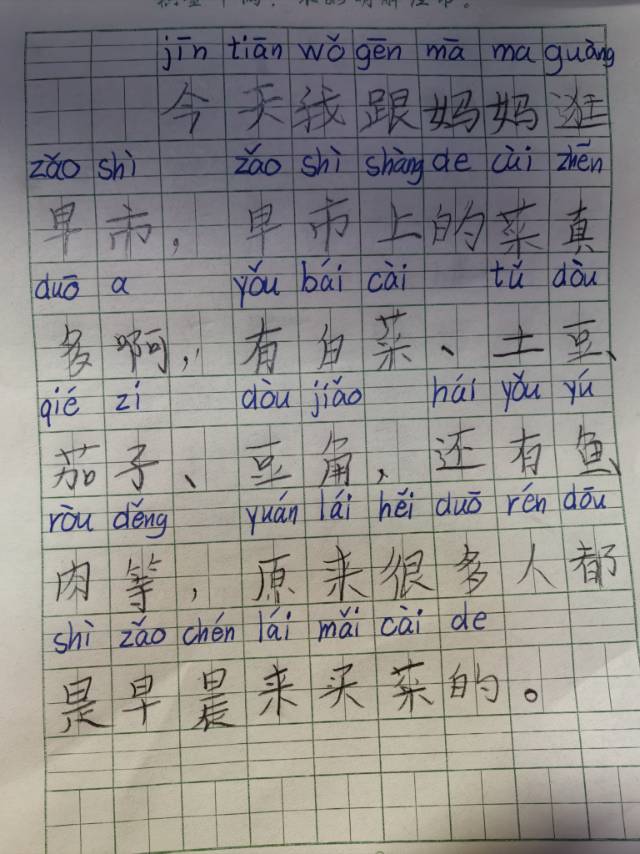 jīn tiān wǒ gēn mā ma guàng
今天我跟妈妈逛
zǎo shì zǎo shì shàng de cài zhēn
早市，早市上的菜真
duō a yǒu bái cài tǔ dòu
多啊，有白菜、土豆、
qié zí dòu jiǎo hái yǒu yú
茄子、豆角，还有鱼、
ròu děng yuán lái hěi duō rén dōu
肉等，原来很多人都
shì zǎo chén lái mǎi cài de
是早晨来买菜的。